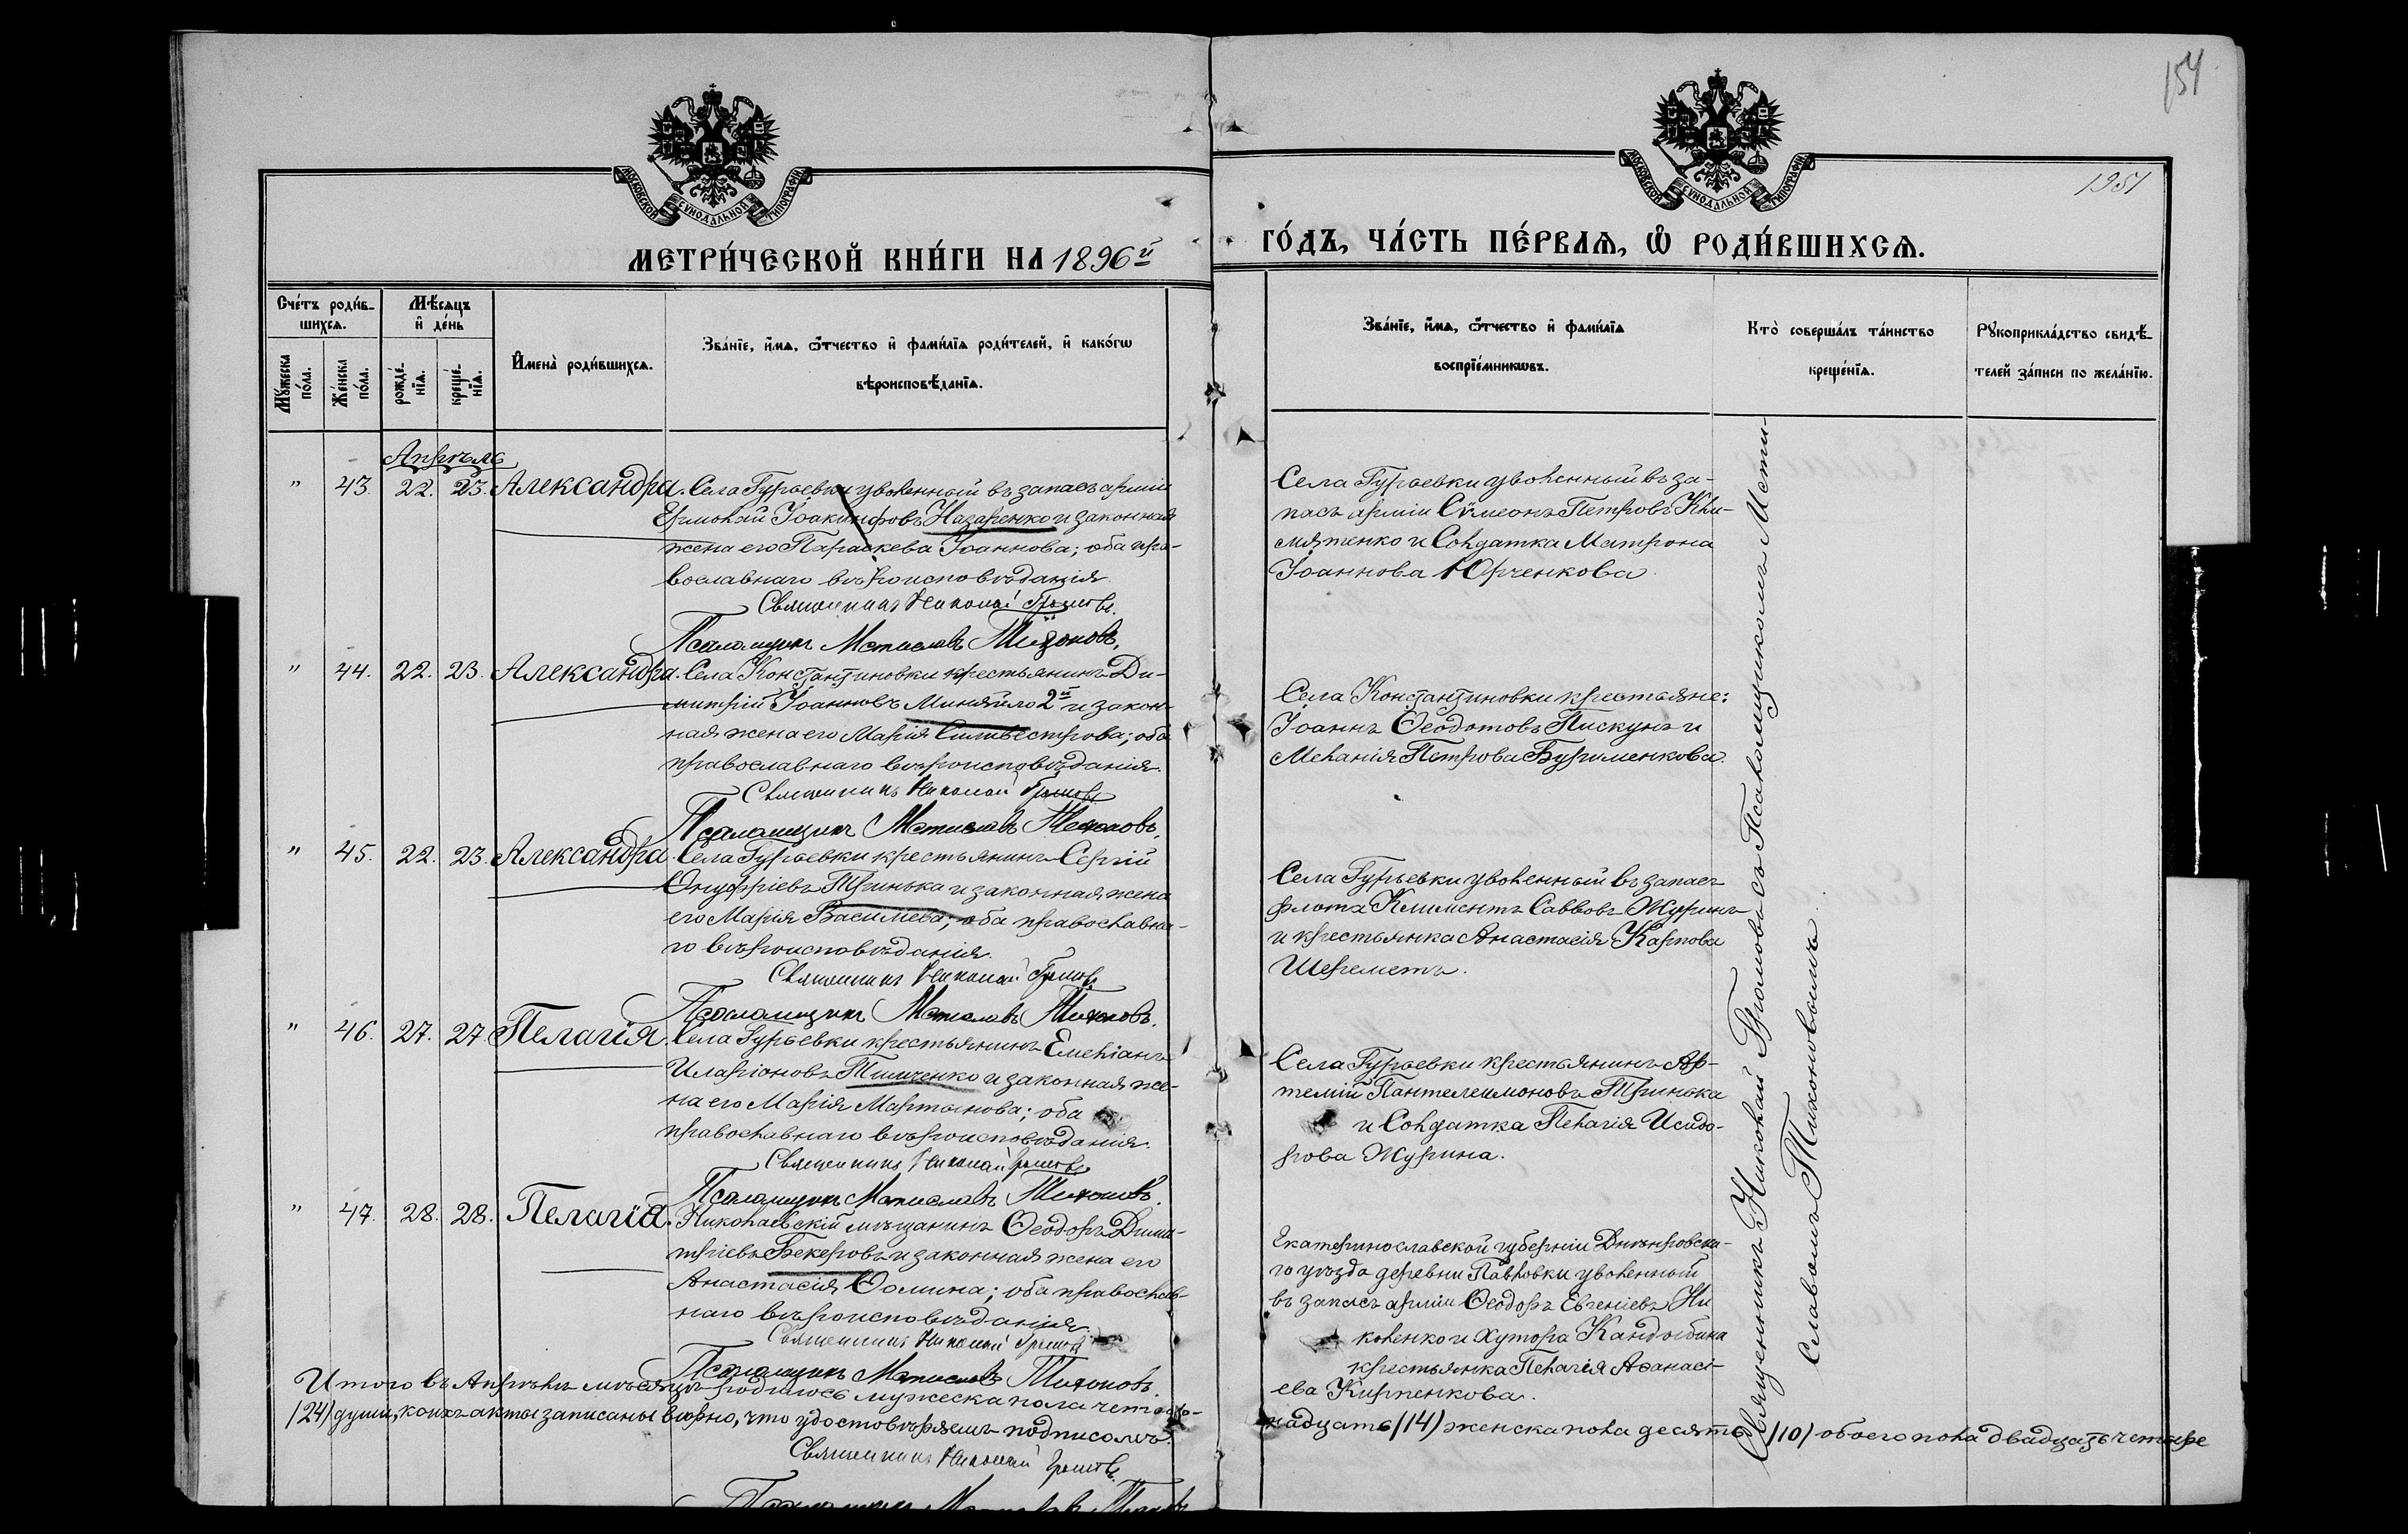 154
1951
МОСКОВСКОЙ СѴНОДАЛЬНОЙ ТИПОГРАФІИ
МОСКОВСКОЙ СѴНОДАЛЬНОЙ ТИПОГРАФІИ
МЕТРИ́ЧЕСКОЙ КНИ́ГИ НА 1896й
ГО́ДЪ, ЧА́СТЬ ПЕ́РВАѦ, Ѽ РОДИ́ВШИХСѦ.
Сче́тъ роди́в-
шихсѧ.
Мꙋ́жеска по́ла.
Же́нска по́ла.
Мѣ́сяцъ
и҆ де́нь
рожде́-
нїѧ.
креще́-
нїѧ.
И҆мена̀ роди́вшихсѧ.
Зва́нїе, и҆́мѧ, ѻ҆́тчество и҆ фами́лїѧ роди́телей, и҆ како́гѡ
вѣроисповѣ́данїѧ.
Зва́нїе, и҆́мѧ, ѻ҆́тчество и҆ фами́лїѧ
воспрїе́мникѡвъ.
Кто̀ соверша́лъ та́инство
креще́нїѧ.
Рꙋкоприкла́дство свидѣ́-
телей за́писи по жела́нїю.
Апрѣль
" 43. 22. 23. Александра. Села Гурьевки уволенный въ запасъ арміи
Ермолай Іоакинфовъ Назаренко и законная
жена его Параскева Іоаннова; оба пра-
вославнаго вѣроисповѣданія.
Священникъ Николай
Псаломщикъ Мстиславъ Тихоновъ.
Села Гурьевки уволенный въ за-
пасъ арміи Сѵмеонъ Петровъ Кли-
мятенко и Солдатка Матрона
Іоаннова Юрченкова
" 44. 22. 23. Александра. Села Константиновки крестьянинъ Ди-
митрій Іоанновъ Миняйло 2й и закон-
ная жена его Марія Сильвестрова; оба
православнаго вѣроисповѣданія.
Священникъ Николай
Псаломщикъ Мстиславъ Тихоновъ.
Села Константиновки крестьяне:
Іоаннъ Ѳеодотовъ Пискунъ и
Меланія Петрова Бурименкова.
" 45. 22. 23. Александра. Села Гурьевки крестьянинъ Сергій
Онуфріевъ Принька и законная жена
его Марія Васильева; оба православна-
го вѣроисповѣданія.
Священникъ Николай
Псаломщикъ Мстиславъ Тихоновъ.
Села Гурьевки уволенный въ запасъ
флота Климентъ Саввовъ Журинъ
и крестьянка Анастасія Карпова
Шереметъ.
" 46. 27. 27 Пелагія. Села Гурьевки крестьянинъ Емеліанъ
Иларіоновъ Тимченко и законная же-
на его Марія Мартынова; оба
православнаго вѣроисповѣданія.
Священникъ Николай
Псаломщикъ Мстиславъ Тихоновъ.
Села Гурьевки крестьянинъ Ар-
темій Пантелеимоновъ Принька
и Солдатка Пелагія Исидо-
рова Журина.
" 47. 28. 28. Пелагія. Николаевскій мѣщанинъ Ѳеодоръ Дими-
тріевъ Бекеровъ и законная жена его
Анастасія Ѳомина; оба православ-
наго вѣроисповѣданія.
Священникъ Николай
Псаломщикъ Мстиславъ Тихоновъ.
Екатеринославской губерніи Днѣпровска-
го уѣзда деревни Павловки уволенный
въ запасъ арміи Ѳеодоръ Евгеніевъ Ни
коленко и хутора Кандыбина
крестьянка Пелагія Аѳанась-
ева Кирпенкова.
Священникъ Николай съ Псаломщикомъ Мсти-
славомъ Тихоновымъ.
Итого въ Апрѣлѣ мѣсяцѣ родилось мужеска пола четыр-
надцать /14/ женска пола десять /10/ обоего пола двадцать четыре
/24/ души, коихъ акты записаны вѣрно, что удостовѣряемъ подписомъ.
Священникъ Николай
Псаломщикъ Мстиславъ Тихоновъ